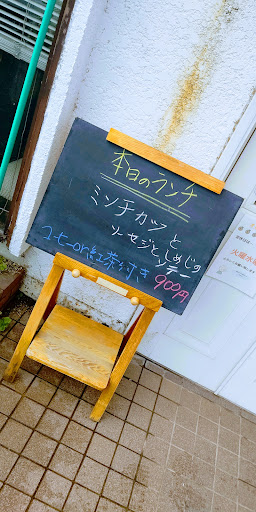 本日のランチ
ミンチカツと
ソーセージとしめじの
ソテー
900円
コーヒーor紅茶付き